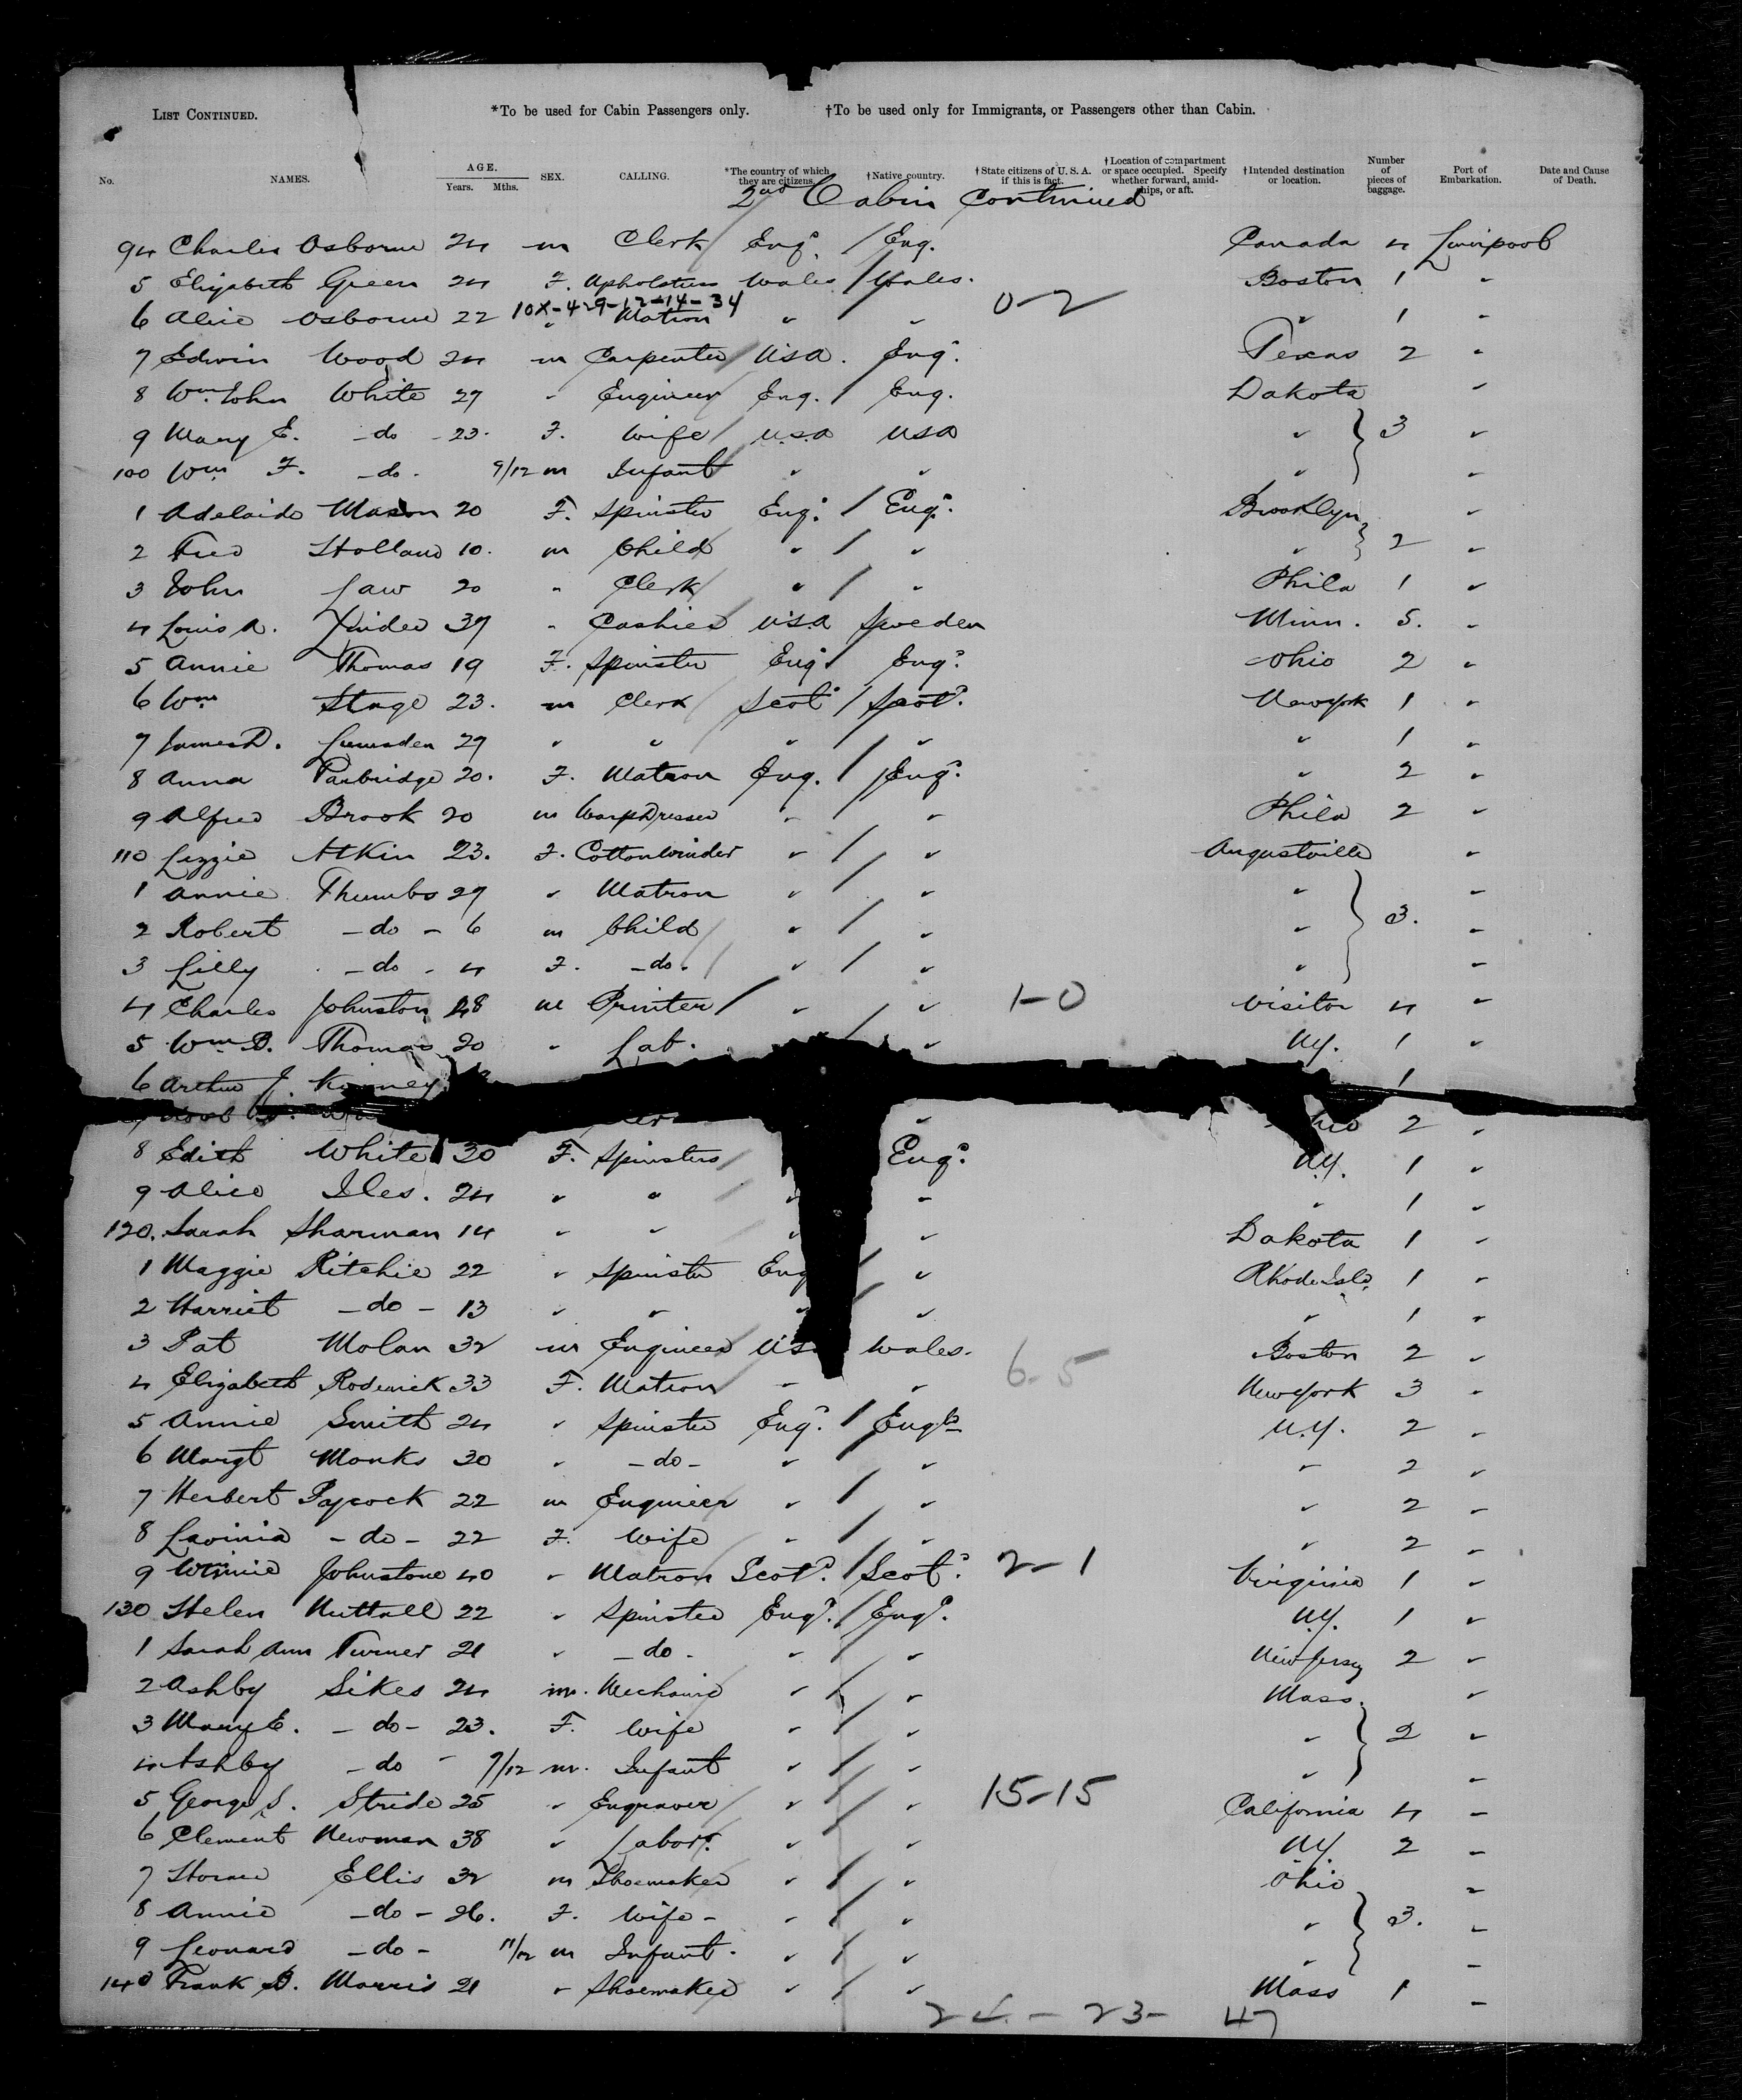 List Continued. *To be used for Cabin Passengers only. †To be used only for Immigrants, or Passengers other than Cabin.
No. NAMES. AGE. Years. Mths. SEX. CALLING. *The country of which they are citizens. †Native country. †State citizens of U.S.A. if this is fact. †Location of compartment or space occupied. Specify whether forward, amidships, or aft. †Intended destination or location. Number of pieces of baggage. Port of Embarkation. Date and Cause of Death.
2nd Cabin Continued
94 Charles Osborne 24 m Clerk Eng. Eng. Canada 4 Liverpool
5 Elizabeth Green 24 F. Upholstress Wales Wales. Boston 1 "
10X-429-12-14-34
6 Alice Osborne 22 " Matron " " 0-2 " 1 "
7 Edwin Wood 24 m Carpenter USA. Eng. Texas 2 "
8 Wm. John White 27 " Engineer Eng. Eng. Dakota "
9 Mary E. -do- 23. F. Wife U.S.A USA " 3 "
100 Wm F. -do- 9/12 m Infant " " " "
1 Adelaide Mason 20 F. Spinster Eng. Eng. Brooklyn "
2 Fred Holland 10. m Child " " " 2 "
3 John Law 20 " Clerk " " Phila 1 "
4 Louis A. 39 " Cashier USA Sweden Minn. 5. "
5 Annie Thomas 19 F. Spinster Eng. Eng. Ohio 2 "
6 Wm Stage 23. m Clerk Scot. Scot. New York 1 "
7 James D. Lumsden 27 " " " " " 1 "
8 Anna Partridge 20. F. Matron Eng. Eng. " 2 "
9 Alfred Brook 20 m Warp Dresser " " Phila 2 "
110 Lizzie Atkin 23. F. Cotton Winder " " Augustville "
1 Annie Thumbs 27 " Matron " " " "
2 Robert -do- 6 m Child " " " 3. "
3 Lilly -do- 4 F. -do- " " " "
4 Charles Johnston 48 m Printer " " 1-0 Visitor 4 "
5 Wm B. Thomas 20 " Lab. " NY. 1 "
6 Arthur J. Kinney 1
2 "
8 Edith White 30 F. Spinsters Eng. NY. 1 "
9 Alice Iles. 24 " " " " " 1 "
120. Sarah Sharman 14 " " " " Dakota 1 "
1 Maggie Ritchie 22 " Spinster Eng " Rhode Isld. 1 "
2 Harriet -do- 13 " " " " " 1 "
3 Pat Molan 32 m Engineer US Wales. 6-5 Boston 2 "
4 Elizabeth Roderick 33 F. Matron " " New York 3 "
5 Annie Smith 24 " Spinster Eng. Engld N.Y. 2 "
6 Margt Monks 30 " -do- " " " 2 "
7 Herbert Paycock 22 m Engineer " " " 2 "
8 Lavinia -do- 22 F. Wife " " " 2 "
9 Winnie Johnstone 40 " Matron Scot. Scot. 2-1 Virginia 1 "
130 Helen Nuttall 22 " Spinster Eng. Eng. NY. 1 "
1 Sarah Ann Turner 21 " -do- " " New Jersey 2 "
2 Ashby Sikes 24 m. Mechanic " " Mass. "
3 Mary E. -do- 23. F. Wife " " " 2 "
4 Ashby -do- 9/12 m. Infant " " " "
5 George S. Stride 25 " Engraver " " 15-15 California 4 "
6 Clement Newman 38 " Labor. " " NY. 2 "
7 Horace Ellis 32 m Shoemaker " " Ohio "
8 Annie -do- 26. F. Wife- " " " 3. "
9 Leonard -do- 11/12 m Infant. " " " "
140 Frank B. Morris 21 " Shoemaker " " Mass 1 "
24-23- 47